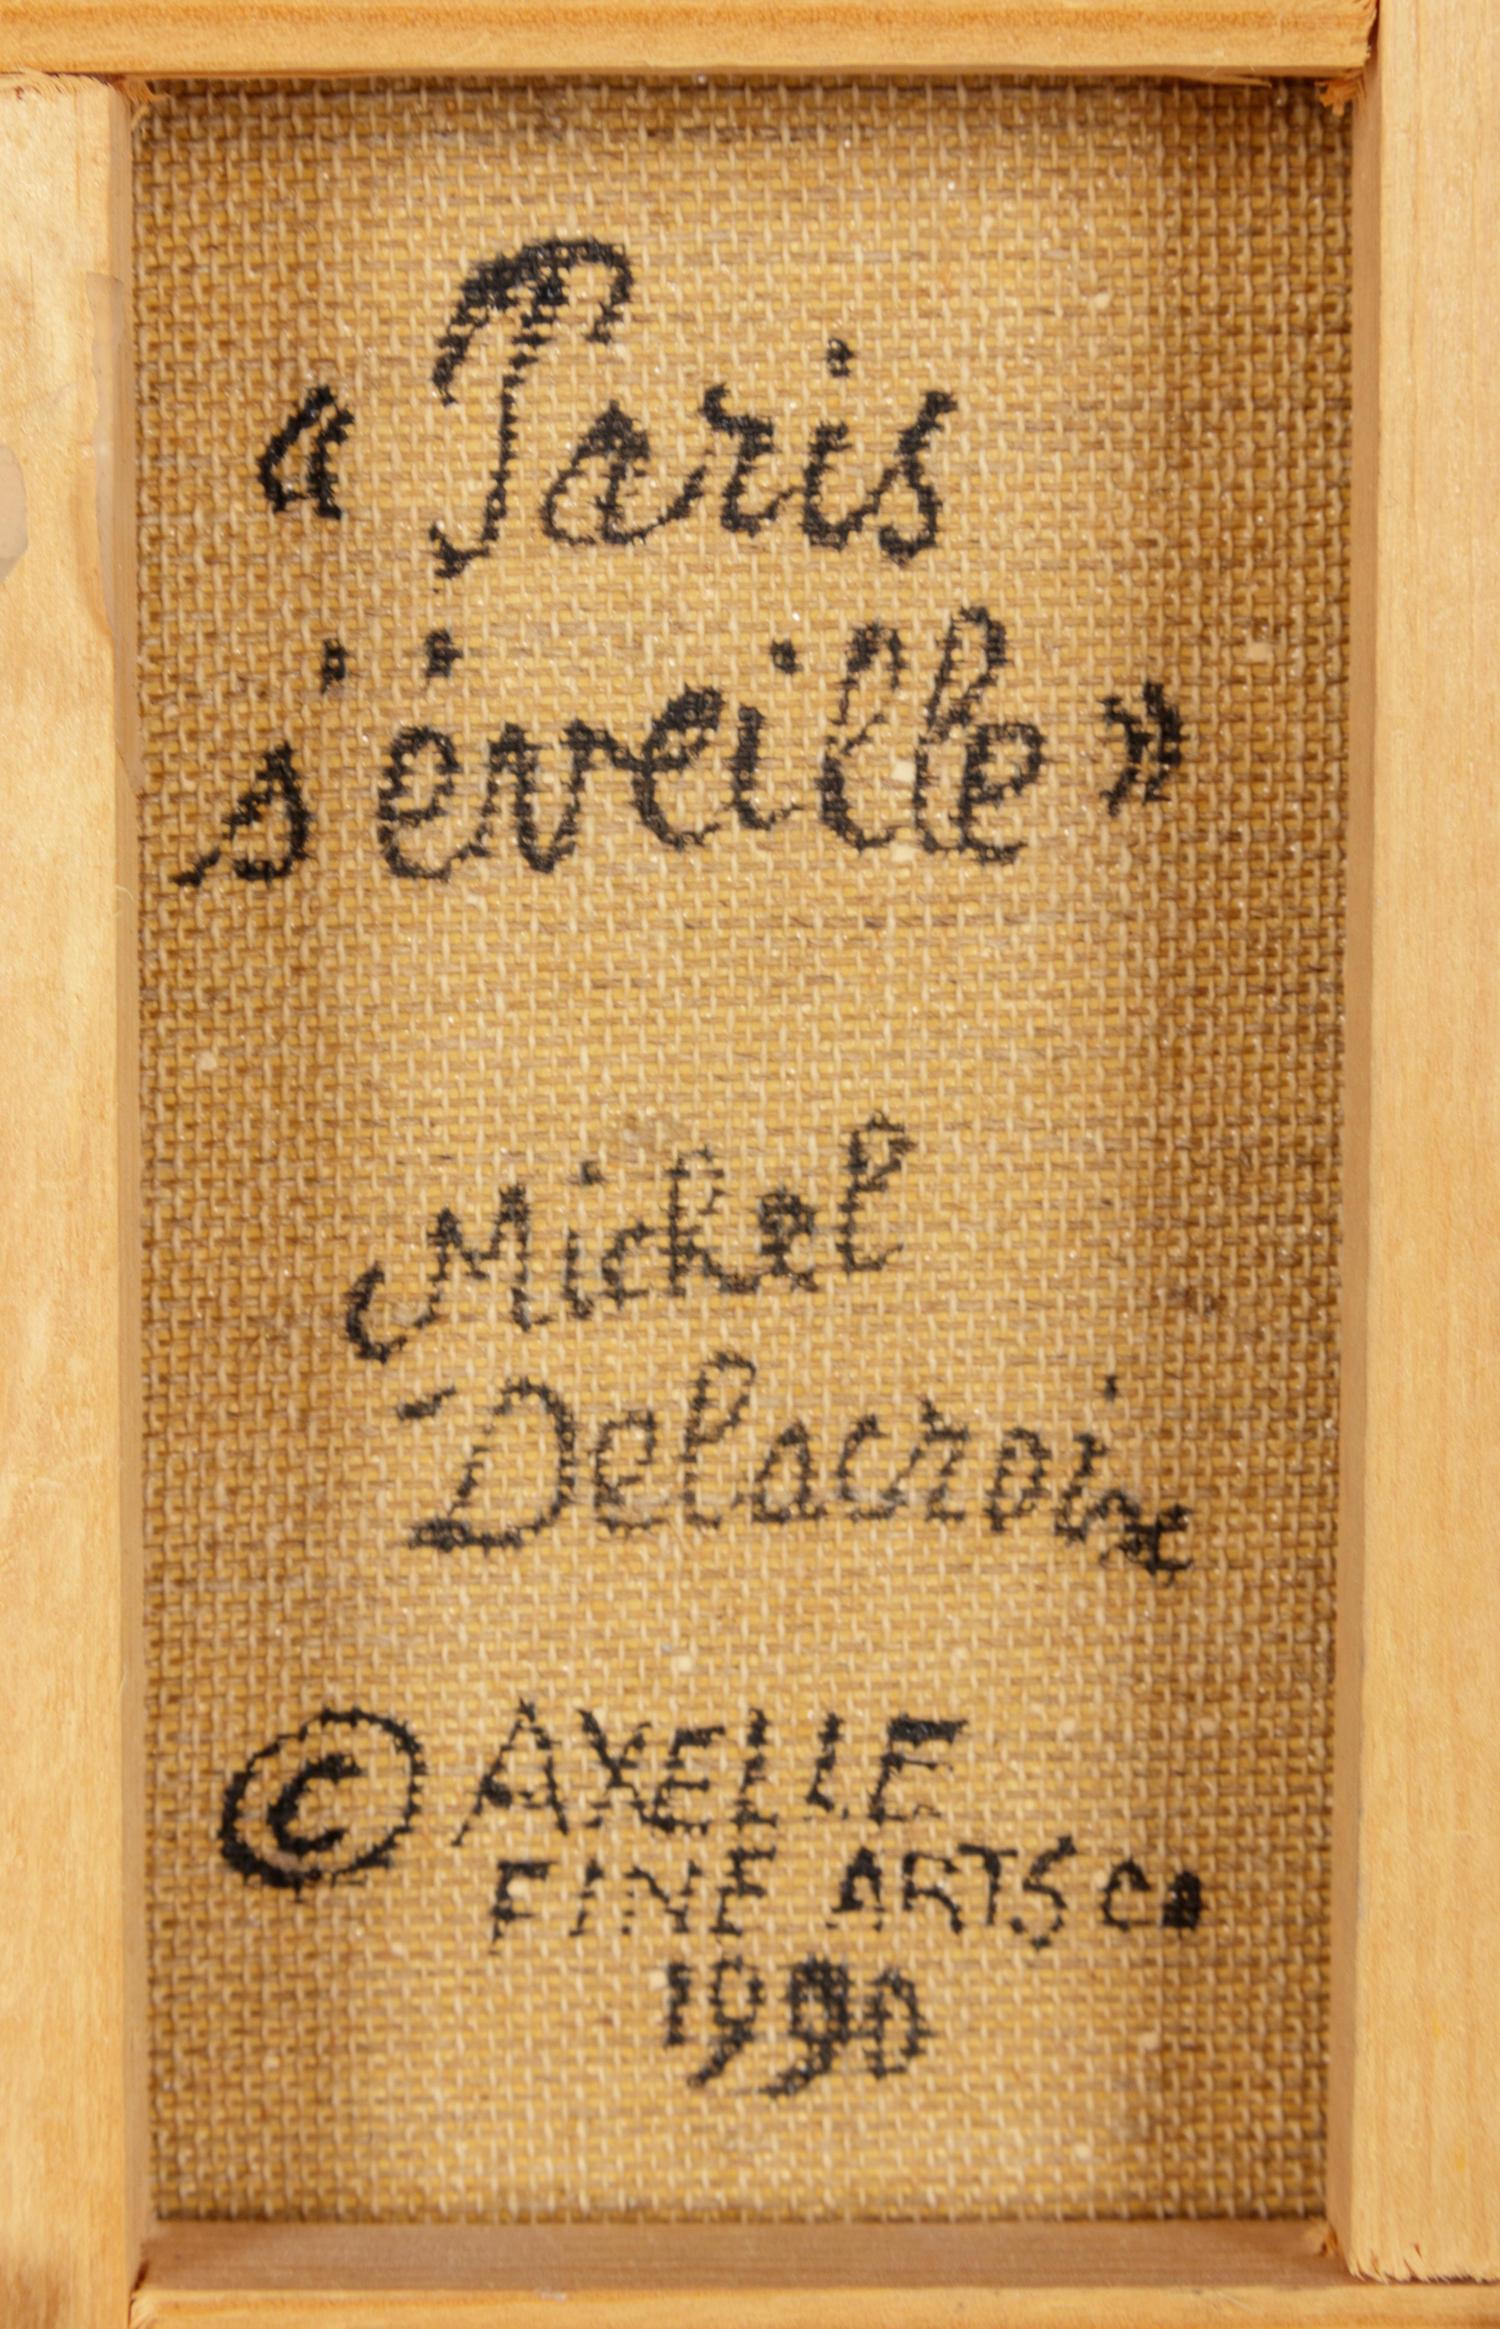 « Paris
s'éveille »
Michel
Delacroix
© AXELLE
FINE ARTS Co
1990